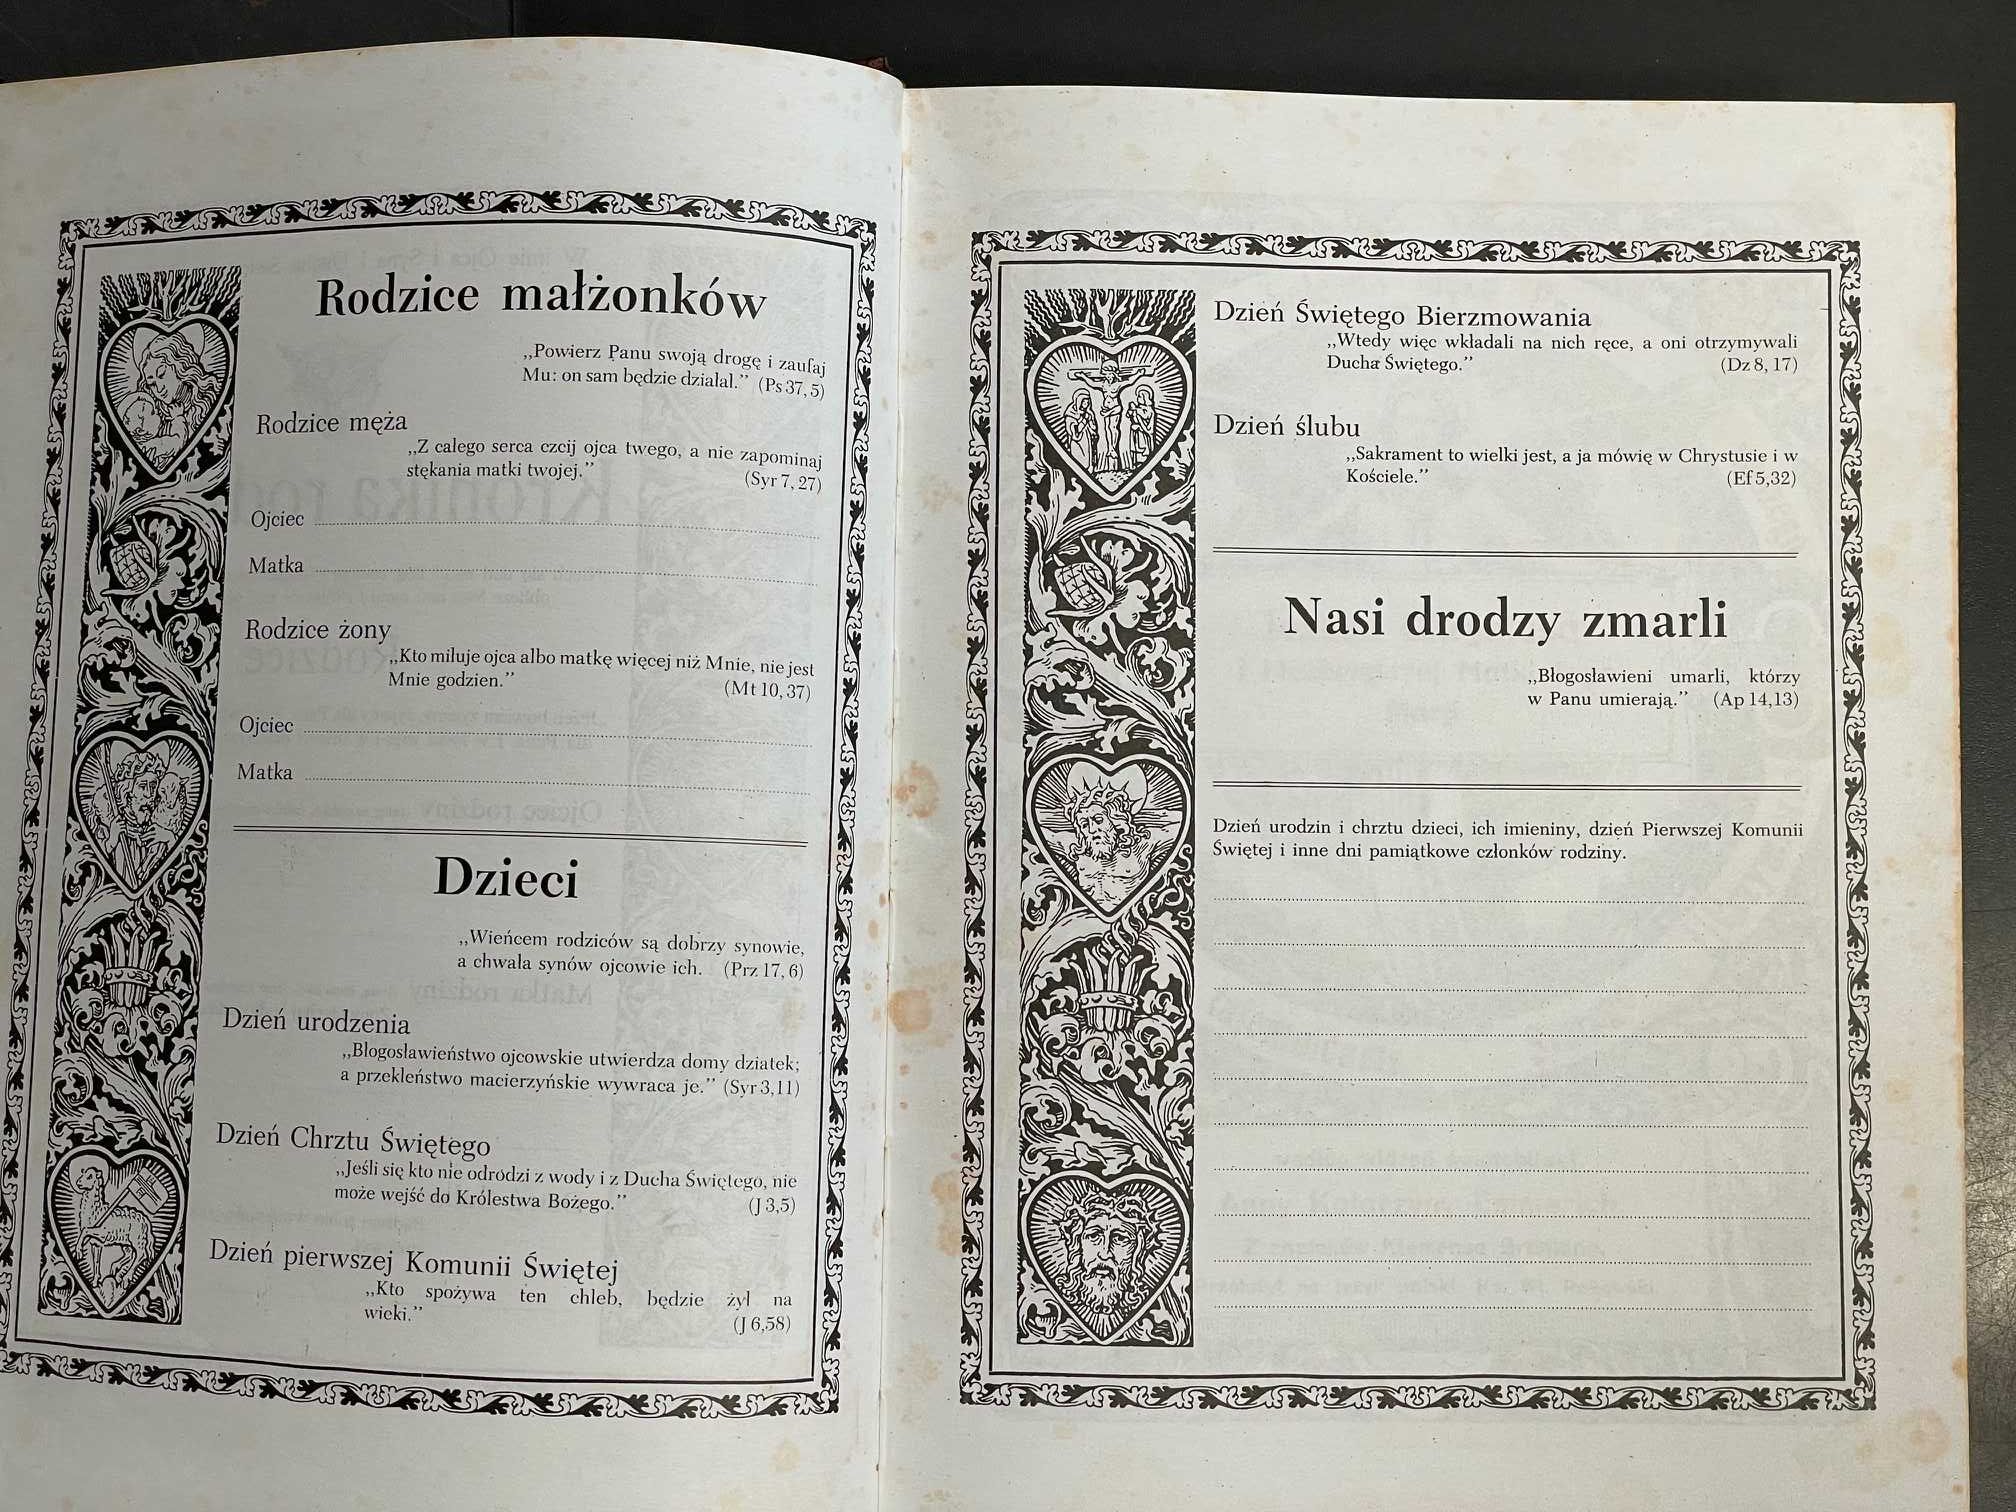 Rodzice małżonków
,,Powierz Panu swoją drogę i zaufaj
Mu: on sam będzie działał.” (Ps 37, 5)
Rodzice męża
,,Z całego serca czcij ojca twego, a nie zapominaj
stękania matki twojej.” (Syr 7, 27)
Ojciec
Matka
Rodzice żony
,,Kto miluje ojca albo matkę więcej niż Mnie, nie jest
Mnie godzien.” (Mt 10, 37)
Ojciec
Matka
Dzieci
,,Wieńcem rodziców są dobrzy synowie,
a chwała synów ojcowie ich. (Prz 17, 6)
Dzień urodzenia
,,Błogosławieństwo ojcowskie utwierdza domy dziatek;
a przekleństwo macierzyńskie wywraca je.” (Syr 3,11)
Dzień Chrztu Świętego
,,Jeśli się kto nie odrodzi z wody i z Ducha Świętego, nie
może wejść do Królestwa Bożego.” (J 3,5)
Dzień pierwszej Komunii Świętej
,,Kto spożywa ten chleb, będzie żył na
wieki.” (J 6,58)
Dzień Świętego Bierzmowania
,,Wtedy więc wkładali na nich ręce, a oni otrzymywali
Ducha Świętego.” (Dz 8, 17)
Dzień ślubu
,,Sakrament to wielki jest, a ja mówię w Chrystusie i w
Kościele.” (Ef 5,32)
Nasi drodzy zmarli
,,Błogosławieni umarli, którzy
w Panu umierają.” (Ap 14,13)
Dzień urodzin i chrztu dzieci, ich imieniny, dzień Pierwszej Komunii
Świętej i inne dni pamiątkowe członków rodziny.